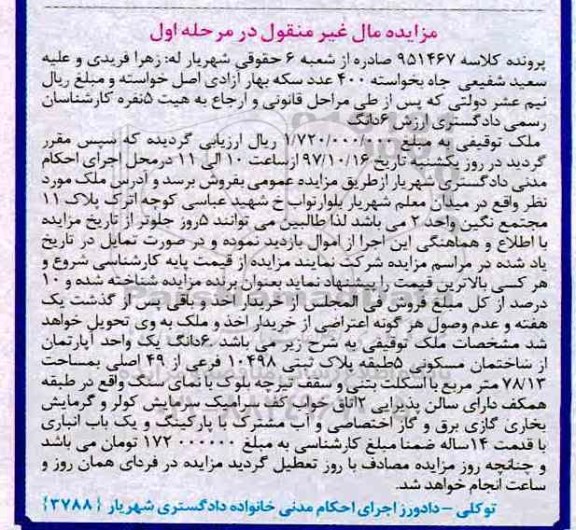 مزایده مال غیر منقول در مرحله اول
پرونده کلاسه ۹۵۱۴۶۷ صادره از شعبه ۶ حقوقی شهریار له: زهرا فریدی و علیه
سعید شفیعی جاه بخواسته ۴۰۰ عدد سکه بهار آزادی اصل خواسته و مبلغ ریال
نیم عشر دولتی که پس از طی مراحل قانونی و ارجاع به هیت ۵نفره کارشناسان
رسمی دادگستری ارزش ۶دانگ
ملک توقیفی به مبلغ ۱/۷۲۰/۰۰۰/۰۰۰ ریال ارزیابی گردیده که سپس مقرر
گردید در روز یکشنبه تاریخ ۹۷/۱۰/۱۶ ازساعت ۱۰ الی ۱۱ درمحل اجرای احکام
مدنی دادگستری شهریار ازطریق مزایده عمومی بفروش برسد و آدرس ملک مورد
نظر واقع در میدان معلم شهریار بلوارتواب خ شهید عباسی کوچه اترک پلاک ۱۱
مجتمع نگین واحد ۲ می باشد لذا طالبین می توانند ۵روز جلوتر از تاریخ مزایده
با اطلاع و هماهنگی این اجرا از اموال بازدید نموده و در صورت تمایل در تاریخ
یاد شده در مراسم مزایده شرکت نمایند مزایده از قیمت پایه کارشناسی شروع و
هر کسی بالاترین قیمت را پیشنهاد نماید بعنوان برنده مزایده شناخته شده و ۱۰
درصد از کل مبلغ فروش فی المجلس از خریدار اخذ و باقی پس از گذشت یک
هفته و عدم وصول هر گونه اعتراضی از خریدار اخذ و ملک به وی تحویل خواهد
شد مشخصات ملک توقیفی به شرح زیر می باشد .۶دانگ یک واحد آپارتمان
از ساختمان مسکونی ۵طبقه پلاک ثبتی ۱۰۴۹۸ فرعی از ۴۹ اصلی بمساحت
۷۸/۱۳ متر مربع با اسکلت بتنی و سقف تیرچه بلوک با نمای سنگ واقع در طبقه
همکف دارای سالن پذیرایی ۲اتاق خواب کف سرامیک سرمایش کولر و گرمایش
بخاری گازی برق و گاز اختصاصی و آب مشترک با پارکینگ و یک باب انباری
با قدمت ۱۴ساله ضمنا مبلغ کارشناسی به مبلغ ۱۷۲۰۰۰۰۰۰ تومان می باشد
و چنانچه روز مزایده مصادف با روز تعطیل گردید مزایده در فردای همان روز و
ساعت انجام خواهد شد.
توکلی – دادورز اجرای احکام مدنی خانواده دادگستری شهریار {۳۷۸۸}